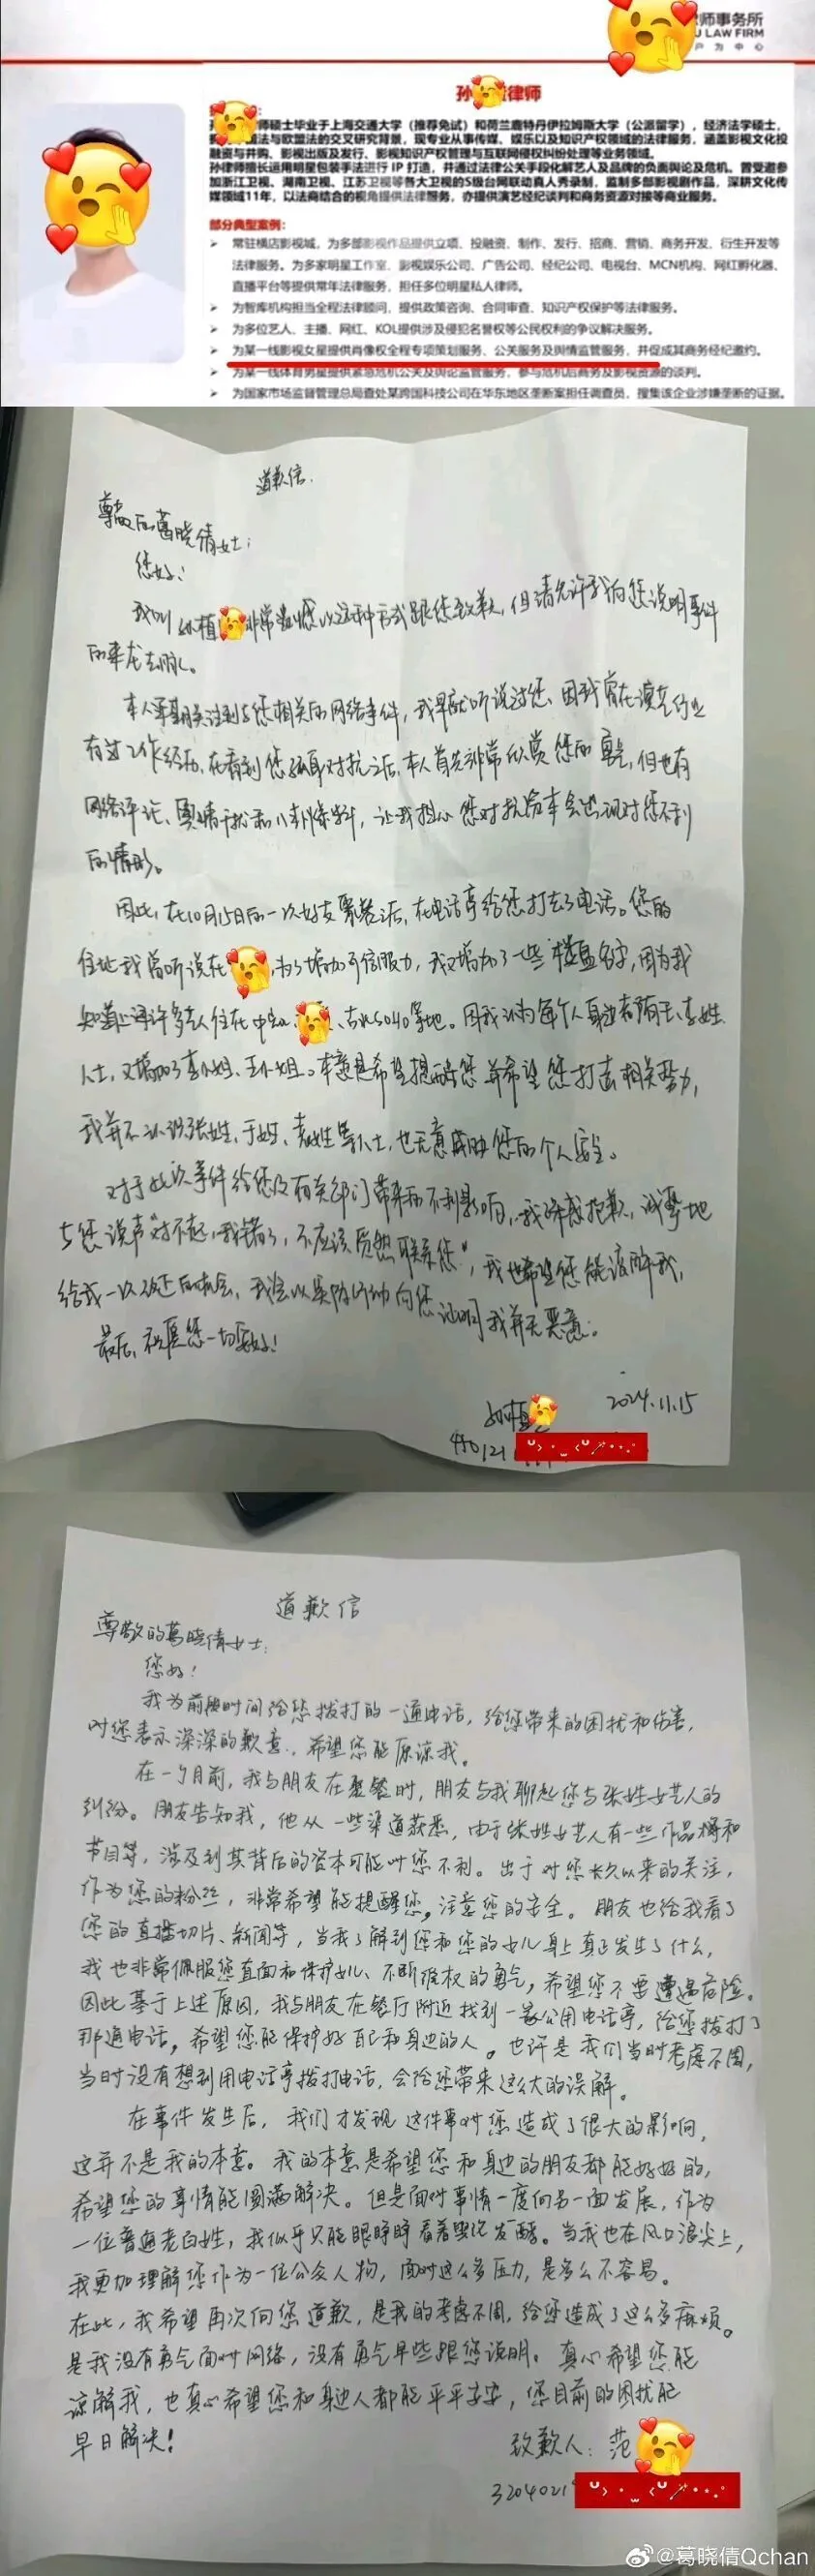 师事务所
U LAW FIRM
户 为 中 心
孙 律师
师硕士毕业于上海交通大学（推荐免试）和荷兰鹿特丹伊拉姆斯大学（公派留学），经济法学硕士，
通法与欧盟法的交叉研究背景，现专业从事传媒、娱乐以及知识产权领域的法律服务，涵盖影视文化投
融资与并购、影视出版及发行、影视知识产权管理与互联网侵权纠纷处理等业务领域。
孙律师擅长运用明星包装手法进行 IP 打造，并通过法律公关手段化解艺人及品牌的负面舆论及危机。曾受邀参
加浙江卫视、湖南卫视、江苏卫视等各大卫视的S级台网联动真人秀录制，监制多部影视剧作品，深耕文化传
媒领域11年，以法商结合的视角提供法律服务，亦提供演艺经纪谈判和商务资源对接等商业服务。
部分典型案例：
➢ 常驻横店影视城，为多部影视作品提供立项、投融资、制作、发行、招商、营销、商务开发、衍生开发等
法律服务。为多家明星工作室、影视娱乐公司、广告公司、经纪公司、电视台、MCN机构、网红孵化器、
直播平台等提供常年法律服务，担任多位明星私人律师。
➢ 为智库机构担当全程法律顾问，提供政策咨询、合同审查、知识产权保护等法律服务。
➢ 为多位艺人、主播、网红、KOL提供涉及侵犯名誉权等公民权利的争议解决服务。
➢ 为某一线影视女星提供肖像权全程专项策划服务、公关服务及舆情监管服务，并促成其商务经纪邀约。
➢ 为某一线体育男星提供紧急危机公关及舆论监管服务，参与危机后商务及影视资源的谈判。
➢ 为国家市场监督管理总局查处某跨国科技公司在华东地区垄断案担任调查员，搜集该企业涉嫌垄断的证据。
道歉信.
尊敬的葛晓倩女士：
您好！
我叫孙植 非常遗憾以这种方式跟您致歉，但请允许我向您说明事件
的来龙去脉。
本人早期关注到与您相关的网络事件，我早就听说过您、因我曾在演艺行业
有过工作经历，在看到您孤身对抗之后，本人首先非常欣赏您的勇气，但也有
网络评论、舆情干扰和八卦爆料，让我担心您对抗资本会出现对您不利
的情形。
因此，在10月15日的一次好友聚餐后，在电话亭给您打去了电话。您的
住址我曾听说在 ，为了增加可信服力，我又增加了一些楼盘名字，因为我
知道上海许多艺人住在中 、古北SOHO等地。因我认为每个人身边都有王、李姓
人士，又增加了李小姐、王小姐。本意是希望提醒您并希望您打击相关势力，
我并不认识张姓、于姓、袁姓等人士，也无意威胁您的个人安全。
对于此次事件给您及有关部门带来的不利影响，我深感抱歉，诚挚地
与您说声“对不起，我错了，不应该贸然联系您”，我也希望您能谅解我，
给我一次改正的机会，我会以实际行动向您证明我并无恶意。
最后，祝愿您一切安好！
孙植 2024.11.15
道歉信
尊敬的葛晓倩女士：
您好！
我为前段时间给您拨打的一通电话，给您带来的困扰和伤害，
对您表示深深的歉意，希望您能原谅我。
在一个月前，我与朋友在聚餐时，朋友与我聊起您与张姓女艺人的
纠纷。朋友告知我，他从一些渠道获悉，由于张姓女艺人有一些作品播和
节目等，涉及到其背后的资本可能对您不利。出于对您长久以来的关注，
作为您的粉丝，非常希望能提醒您，注意您的安全。朋友也给我看了
您的直播切片、新闻等，当我了解到您和您的女儿身上真正发生了什么，
我也非常佩服您直面和保护女儿、不断维权的勇气，希望您不要遭遇危险。
因此基于上述原因，我与朋友在餐厅附近找到一家公用电话亭，给您拨打了
那通电话，希望您能保护好自己和身边的人。也许是我们当时考虑不周，
当时没有想到用电话亭拨打电话，会给您带来这么大的误解。
在事件发生后，我们才发现这件事对您造成了很大的影响，
这并不是我的本意。我的本意是希望您和身边的朋友都能好好的，
希望您的事情能圆满解决。但是面对事情一度向另一面发展，作为
一位普通老百姓，我似乎只能眼睁睁看着舆论发酵。当我也在风口浪尖上，
我更加理解您作为一位公众人物，面对这么多压力，是多么不容易。
在此，我希望再次向您道歉，是我的考虑不周，给您造成了这么多麻烦。
是我没有勇气面对网络，没有勇气早些跟您说明。真心希望您能
谅解我，也真心希望您和身边人都能平平安安，您目前的困扰能
早日解决！
致歉人：范
3204021
@葛晓倩Qchan